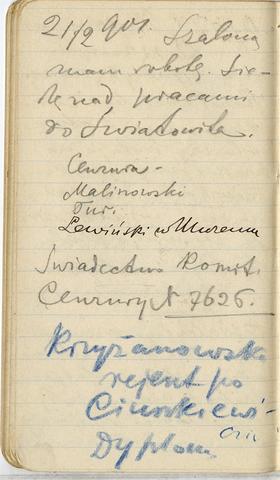 21/2 901. Szaloną
mam robotę. Sie-
dzę nad pracami
do Światowita.
Cenzura -
Malinowski
Tur.
Lewiński w Muzeum
Świadectwo Komit.
Cenzury N 7626.
Krzyżanowski
rejent po
Ciunkiewi-
czu
Dyplom